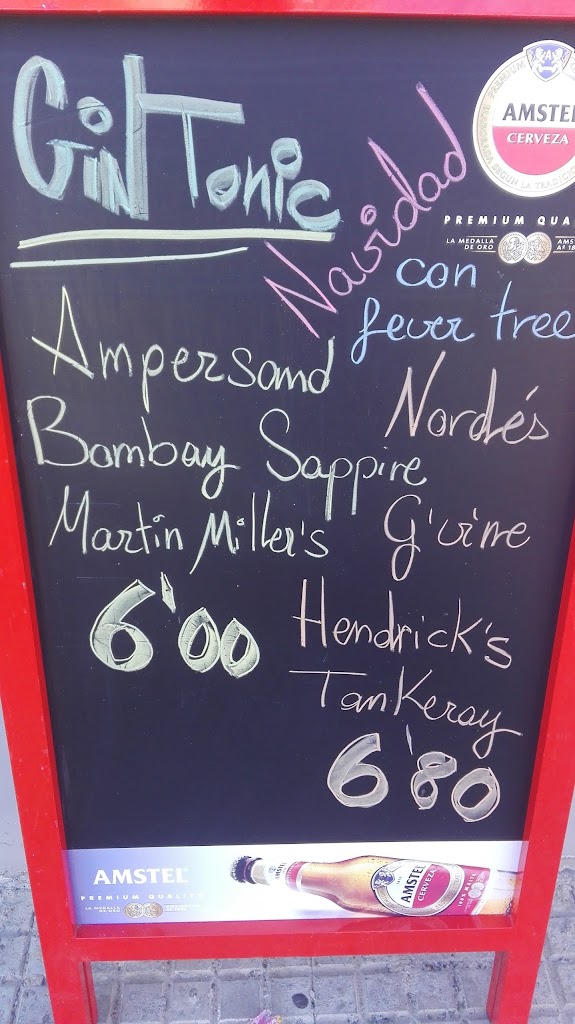 Gin Tonic
Navidad
con
fever tree
Ampersand
Bombay Sappire
Martin Miller's
6'00
Nordés
G'vine
Hendrick's
TanKeray
6'80
AMSTEL
CERVEZA
SEGÚN LA TRADICIÓ
PREMIUM QUA
LA MEDALLA
DE ORO
AMS
Aº 18
AMSTEL
PREMIUM QUALITY
LA MEDALLA
DE ORO
AMSTEL
CERVEZA